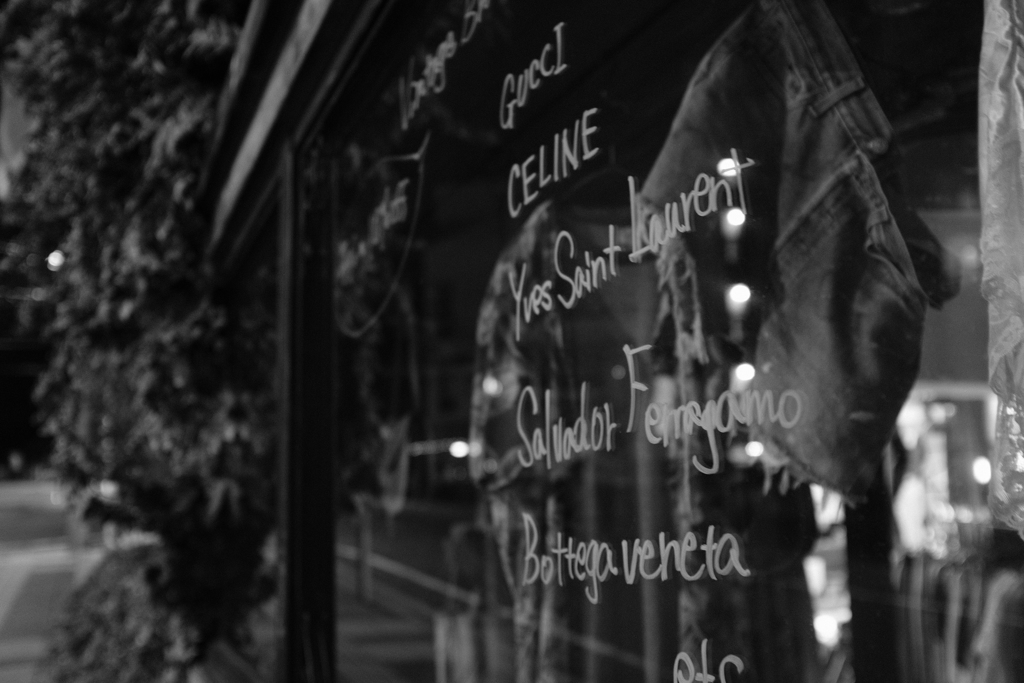 GUCCI
CELINE
Yves Saint Laurent
Salvador Ferragamo
Bottega veneta
etc